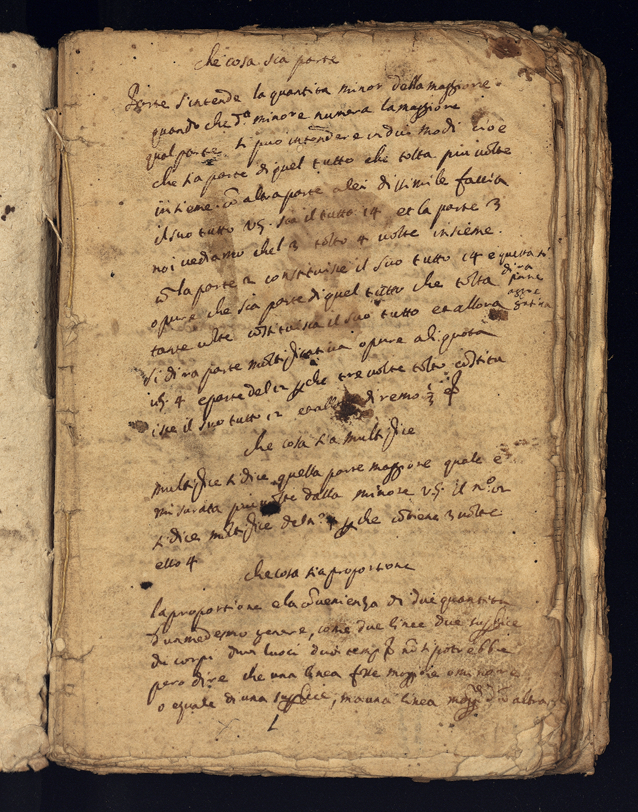 che cosa sia parte
Parte s'intende la quantita minor della maggiore
quando che d.ª minore numera la maggiore
qual parte si puo intendere in due modi cioe
che sia parte di quel tutto che tolta piu volte
insieme cō altra parte a lei dissimile faccia
il suo tutto vg. sia il tutto 14 et la parte 3
noi vediamo chel 3 tolto 4 volte insieme
cō la parte 2 constituisce il suo tutto 14 e questa si
dira
parte
aggre
gativa
opure che sia parte di quel tutto che tolta
tante volte cōstituisca il suo tutto et allora
si dira parte multiplicativa opure aliquota
vg. 4 e parte del 12 pche tre volte tolto cōstitu
isce il suo tutto 12 et diremo 1/3
che cosa sia multiplice
multiplice si dice quella parte maggiore quale e
misurata piu volte dalla minore vg. il n.º 12
si dice multiplice del pche cōtiene 3 volte
esso 4
che cosa sia proportione
la proportione e la cōvenienza di due quantita
d'un medesmo genere, come due linee due supficie
dui corpi dui luoci dui tempi nō si potrebbe
pero dire che una linea fosse maggiore o minore
o equale di una supficie, ma una linea altra